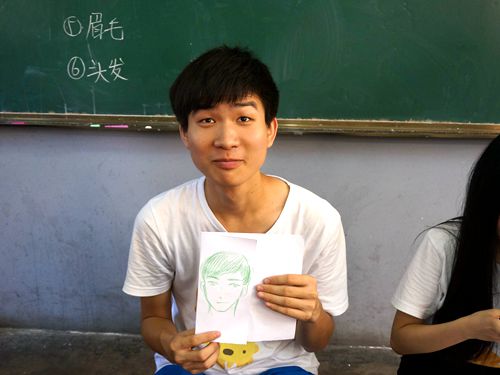 ⑤眉毛
⑥头发